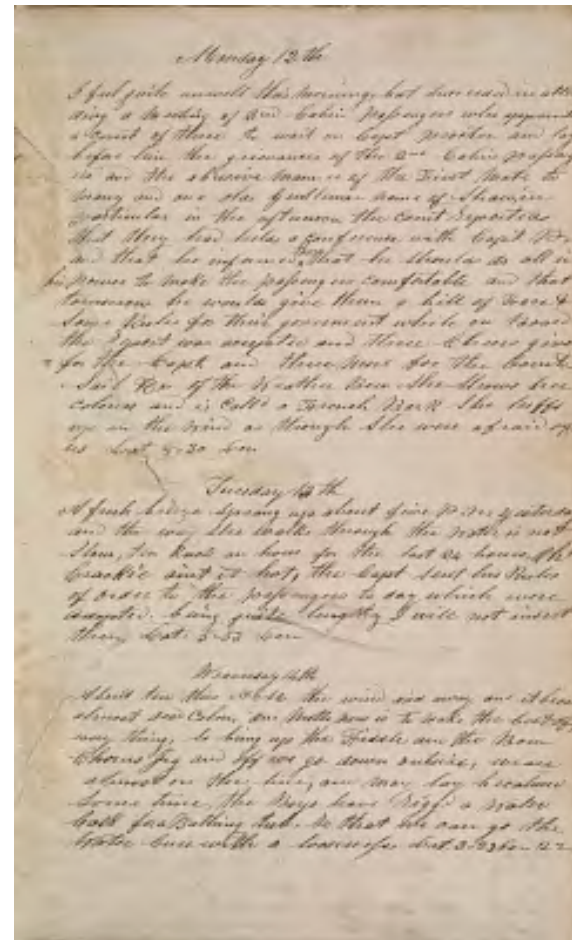 Monday 12th
I feel quite unwell this morning, but succeed in atten
ding a meeting of 2nd Cabin passengers who appoint
a Comt of three to wait on Capt and lay
before him the grievances of the 2nd Cabin passeng
ers and the abusive manner of the First Mate to
many and one old gentleman name of in
particular in the afternoon the Comt reported
that they had held a conference with Capt
and that he informed them that he should do all in
his power to make the passengers comfortable and that
tomorrow he would give them a bill of &
some Rules for their government while on board
the report was accepted and three Cheers given
for the Capt and three more for the Comt
Sail Ho off the Weather Bow She Shows her
colours and is Called a French Bark She luffs
up in the wind as though She were afraid of
us Lat 5.30 Lon
Tuesday 13th
A fresh breeze sprang up about five P.M. yesterday
and the way she walks through the water is not
slow, ten knots an hour for the last 24 hours, Oh
Crackie aint it hot, the Capt sent his Rules
of order to the passengers to day which were
accepted. being quite lengthy I will not insert
them, Lat 3.53 Lon
Wednesday 14th
About ten this the wind died away and it became
almost dead Calm, our Motto now is to take the best of
every thing, so bring up the Fiddle and the
Jig and off we go down outside, we are
almost on the line, and may lay becalmed
some time, the Boys have rigd a water
Cask for a Bathing tub so that we can go the
Water Cure with a looseness Lat 3. Lon 22